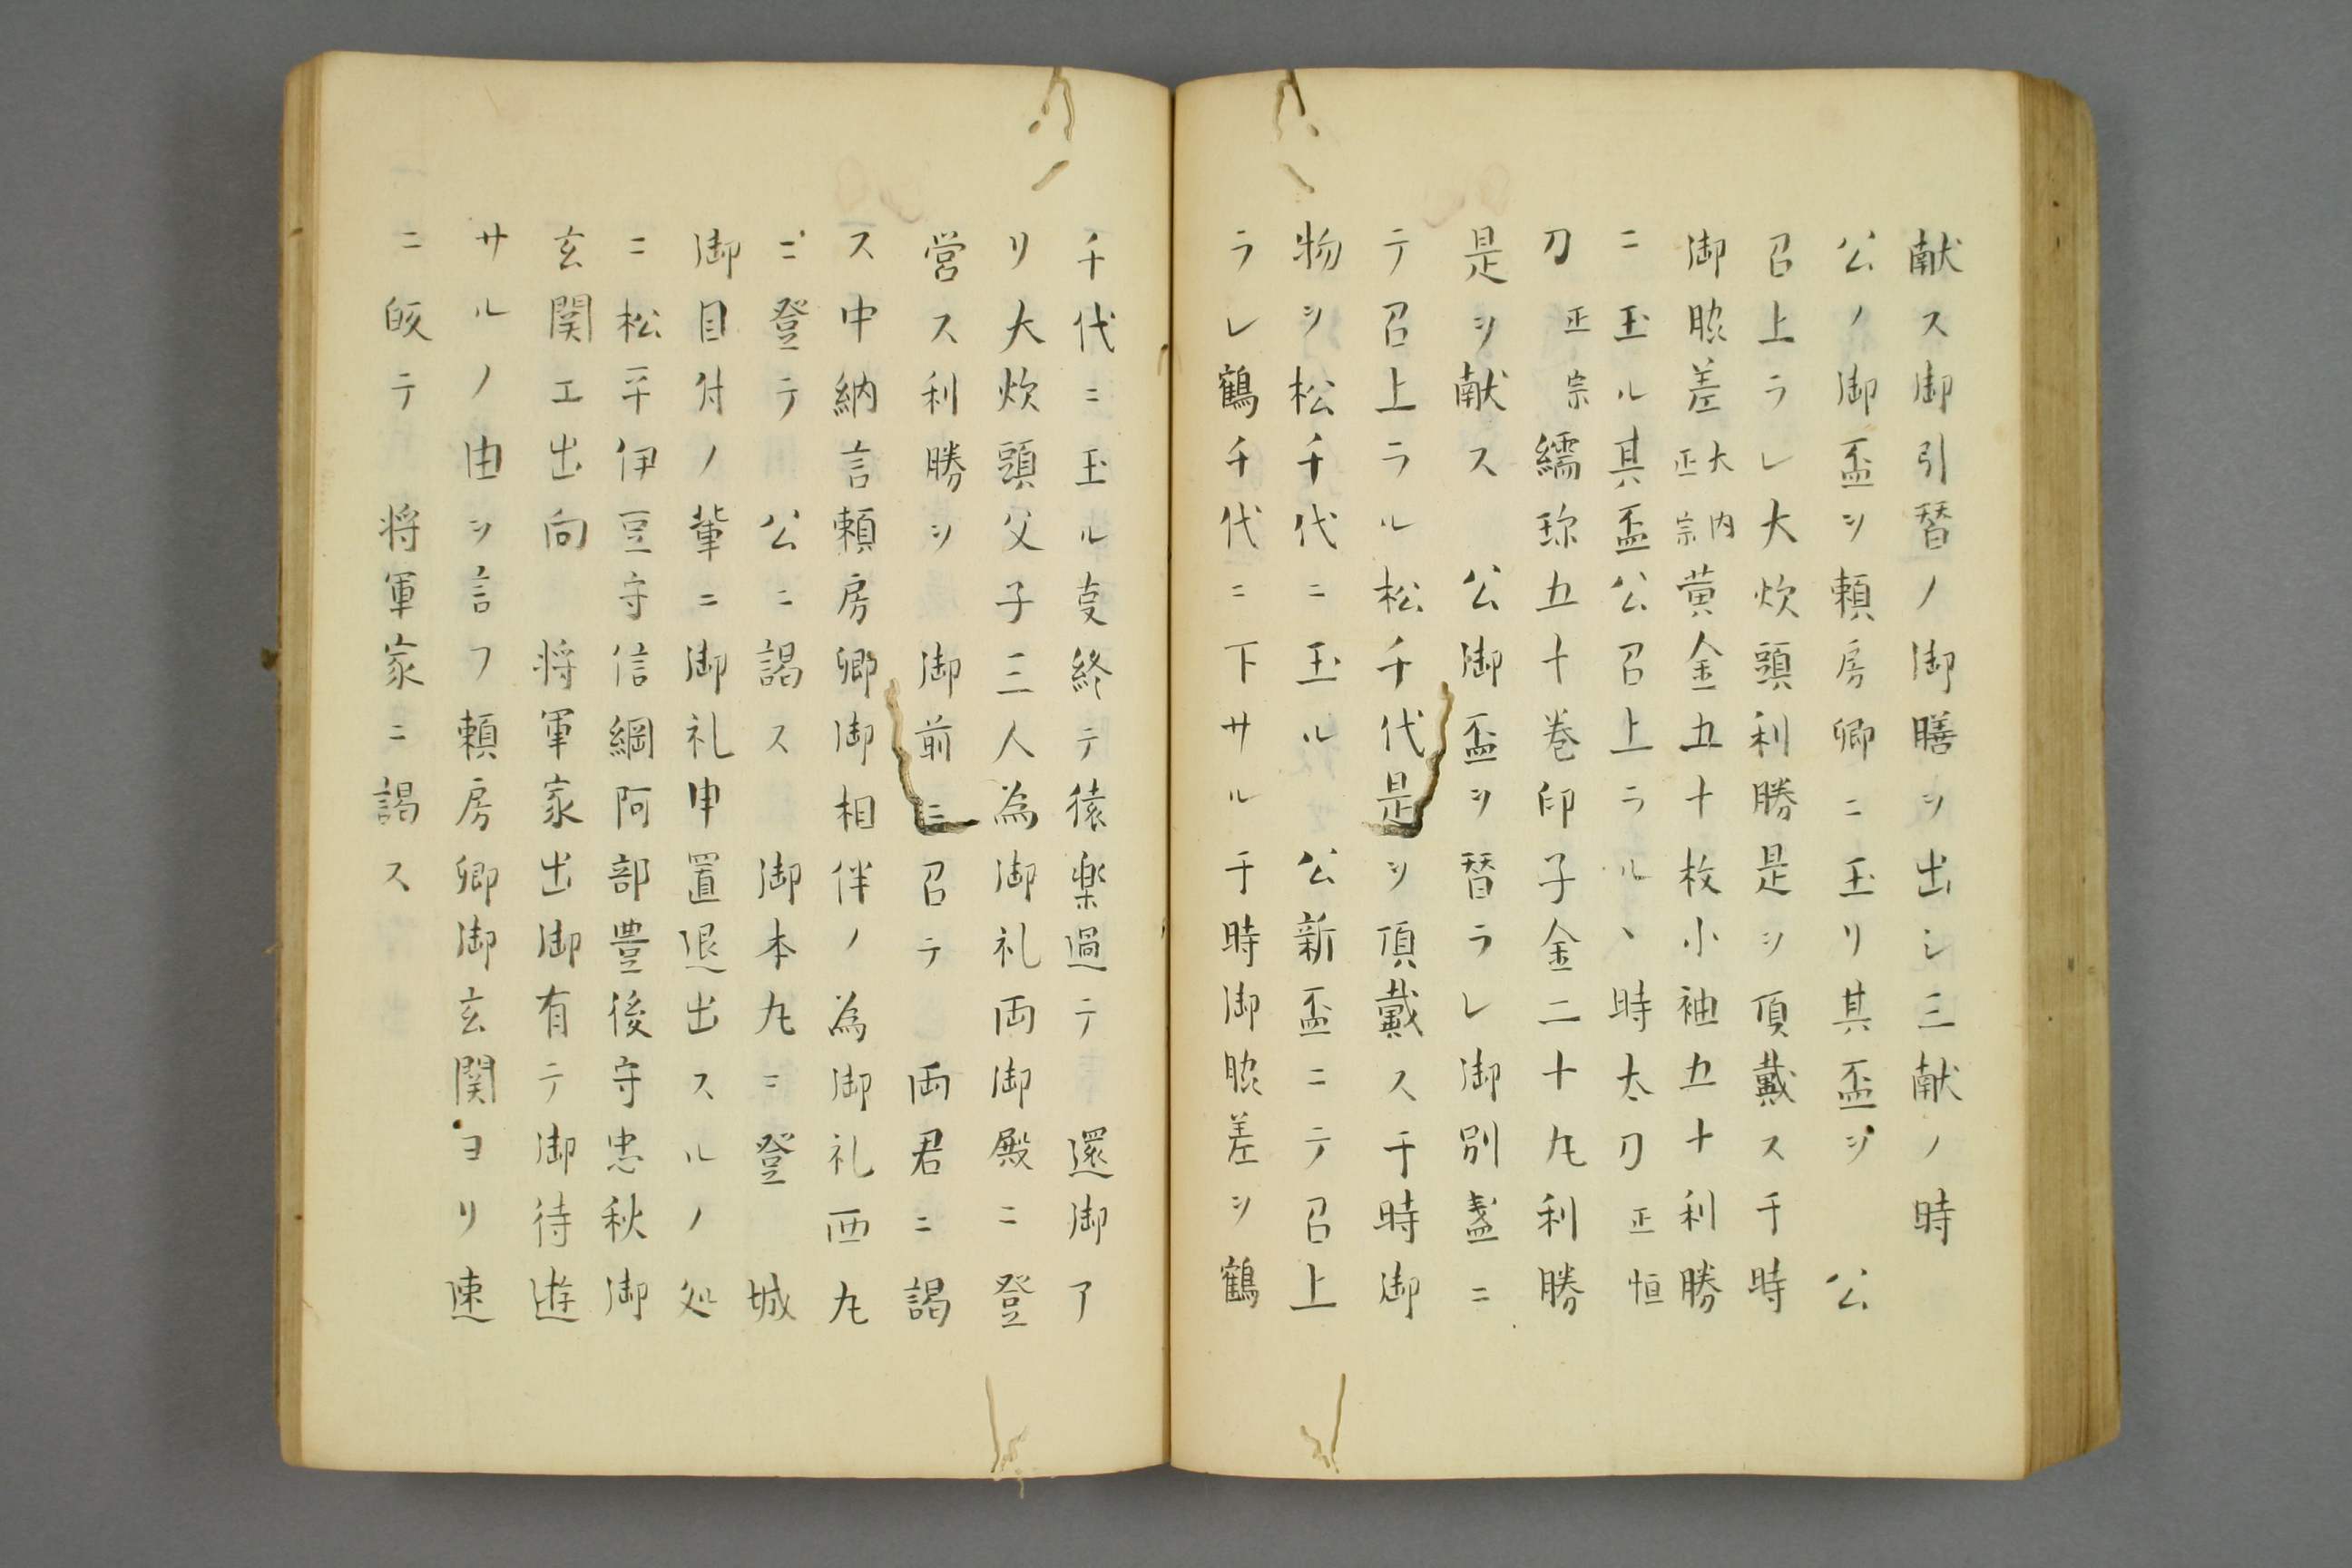 献ス御引替ノ御膳ヲ出シ三献ノ時
公ノ御盃ヲ頼房卿ニ玉リ其盃ヲ　公
召上ラレ大炊頭利勝是ヲ頂戴ス于時
御脇差大内正宗黄金五十枚小袖五十利勝
ニ玉ル其盃公召上ラルヽ時太刀正恒
刀正宗繻珍五十巻印子金二十九利勝
是ヲ献ス　公御盃ヲ替ラレ御別盞ニ
テ召上ラル松千代是ヲ頂戴ス于時御
物ヲ松千代ニ玉ル　公新盃ニテ召上
ラレ鶴千代ニ下サル于時御脇差ヲ鶴
千代ニ玉ル事終テ猿楽過テ　還御了
リ大炊頭父子三人為御礼両御殿ニ登
営ス利勝ヲ　御前ニ召テ　両君ニ謁
ス中納言頼房卿御相伴ノ為御礼西丸
ニ登テ　公ニ謁ス　御本丸ニ登　城
御目付ノ輩ニ御礼申置退出スルノ処
ニ松平伊豆守信綱阿部豊後守忠秋御
玄関エ出向　将軍家出御有テ御待遊
サルノ由ヲ言フ頼房卿御玄関ヨリ速
ニ皈テ　将軍家ニ謁ス